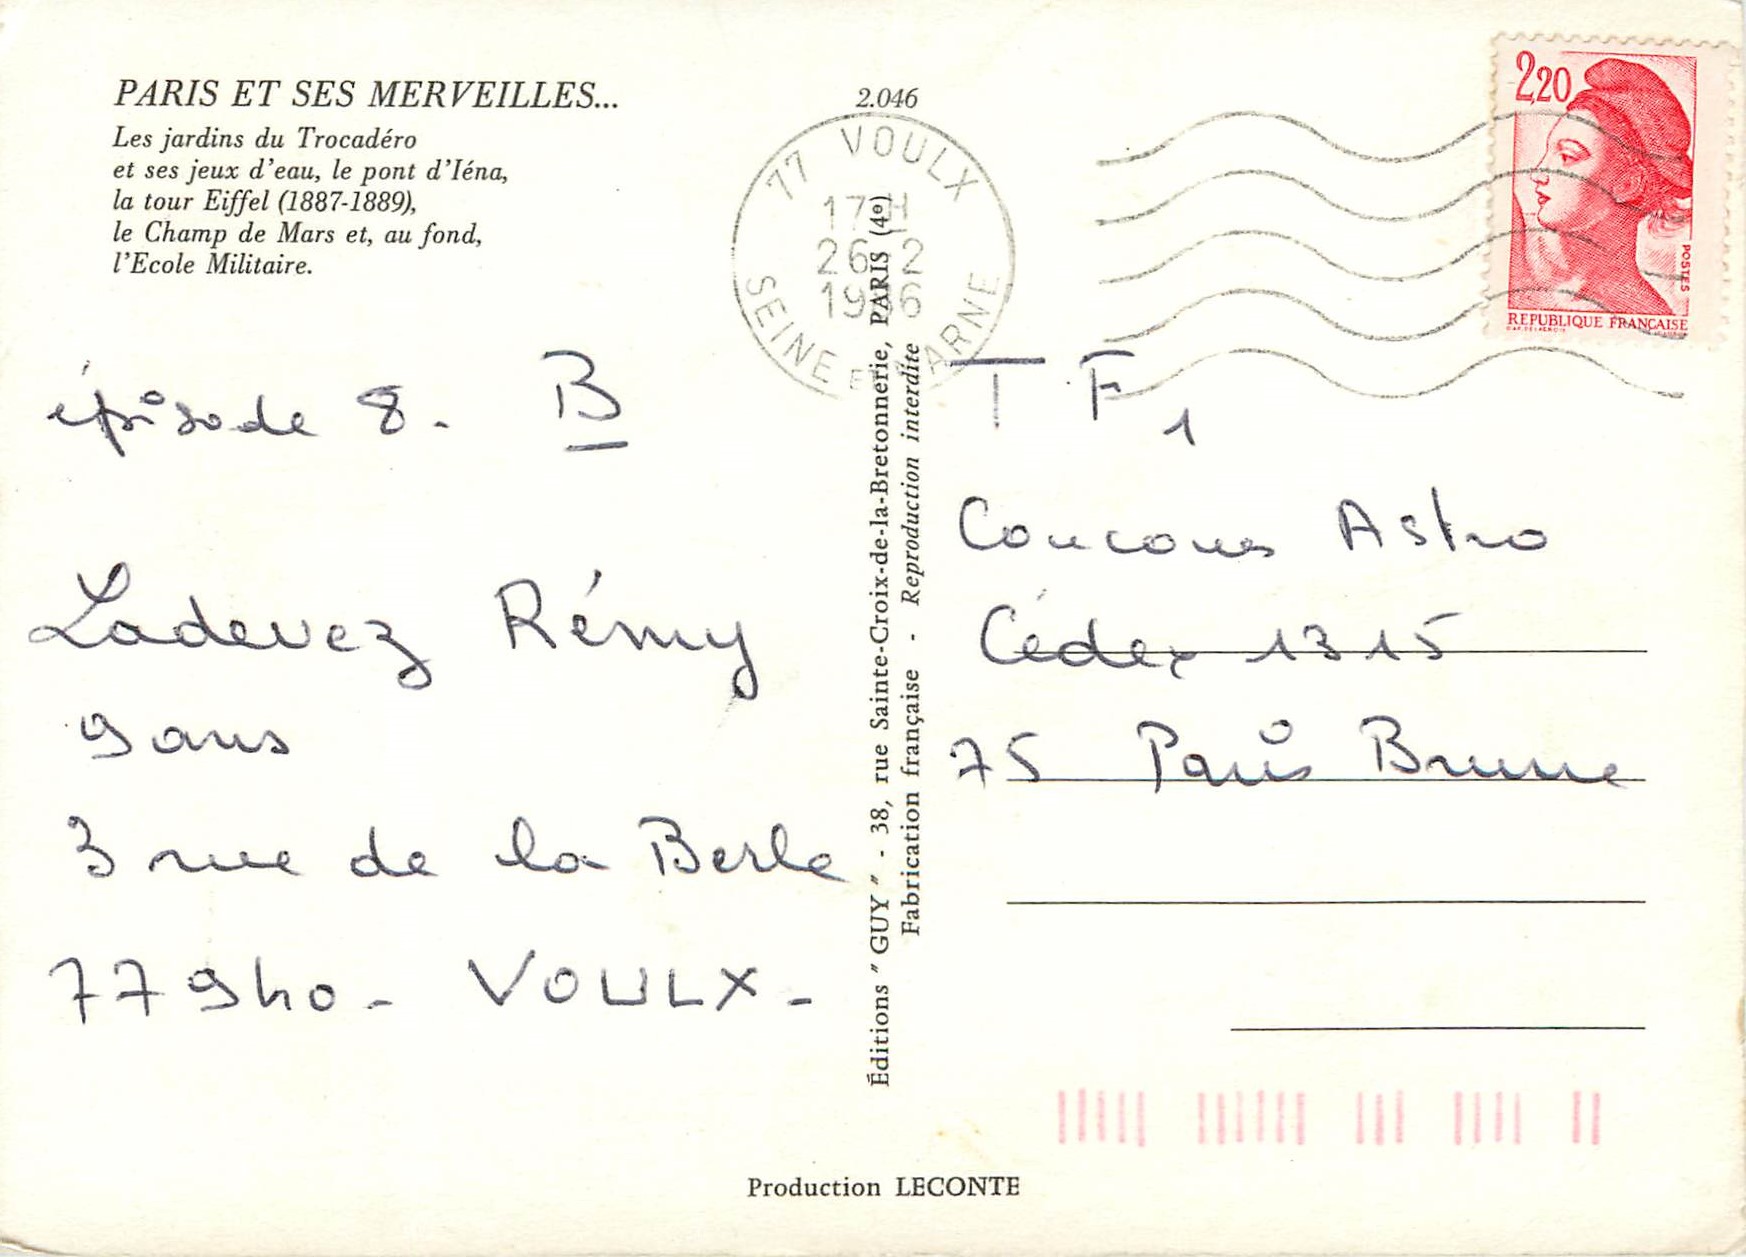 PARIS ET SES MERVEILLES...
Les jardins du Trocadéro
et ses jeux d'eau, le pont d'Iéna,
la tour Eiffel (1887-1889),
le Champ de Mars et, au fond,
l'Ecole Militaire.
2.046
77 VOULX
17H
26-2
1986
SEINE ET MARNE
2,20
POSTES
REPUBLIQUE FRANÇAISE
épisode 8. B
Ladevez Rémy
9 ans
3 rue de la Berle
77940 - VOULX -
Éditions "GUY" - 38, rue Sainte-Croix-de-la-Bretonnerie, PARIS (4e)
Fabrication française - Reproduction interdite
TF1
Concours Astro
Cédex 1315
75 Paris Brune
Production LECONTE